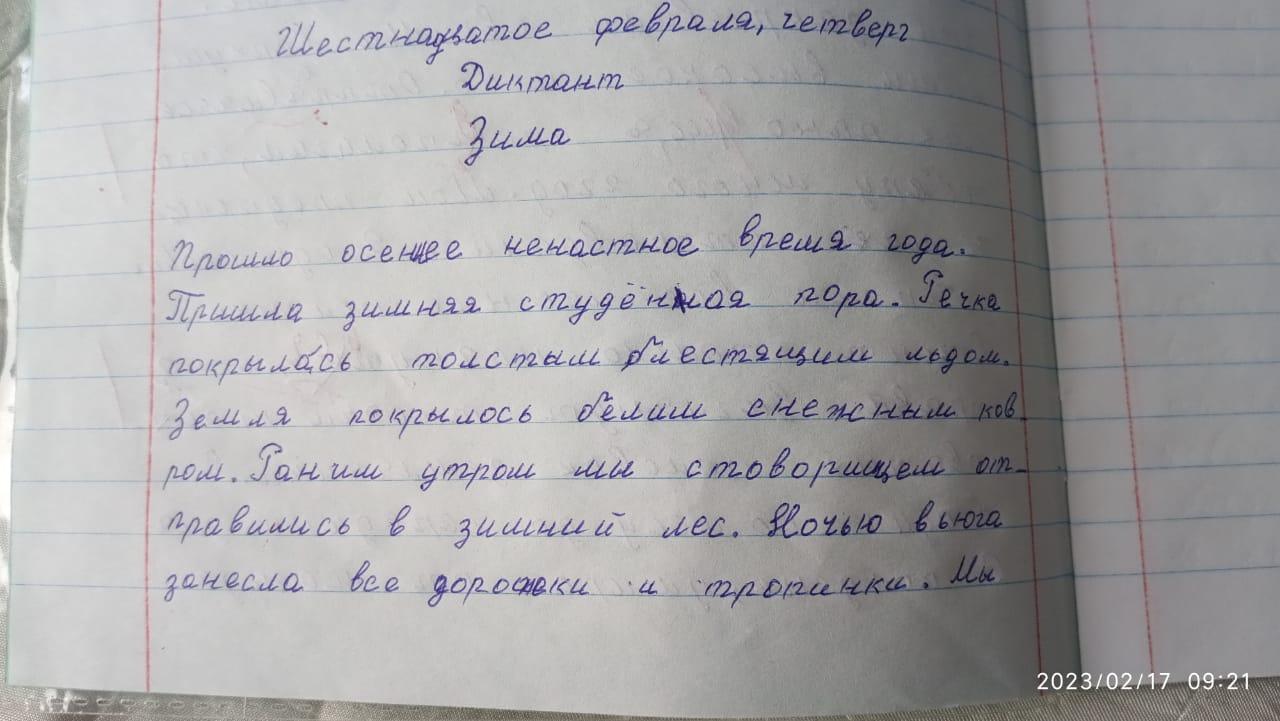 Шестнадцатое февраля, четверг
Диктант
Зима
Прошло осеннее ненастное время года.
Пришла зимняя студёная пора. Речка
покрылась толстым блестящим льдом.
Земля покрылось белим снежным ков-
ром. Раним утром мы стоворищем от-
правились в зимний лес. Ночью вьюга
занесла все дорожки и тропинки. Мы
2023/02/17 09:21